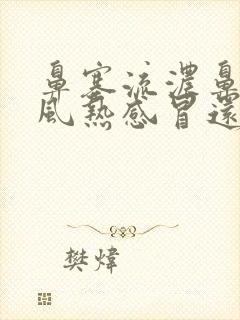 鼻塞流浓鼻
风热感冒还
樊炜